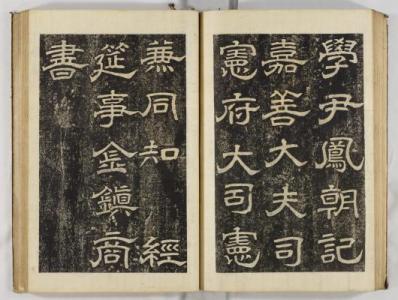 學尹鳳朝記
嘉善大夫司
憲府大司憲
兼同知 經
筵事金鎭商
書